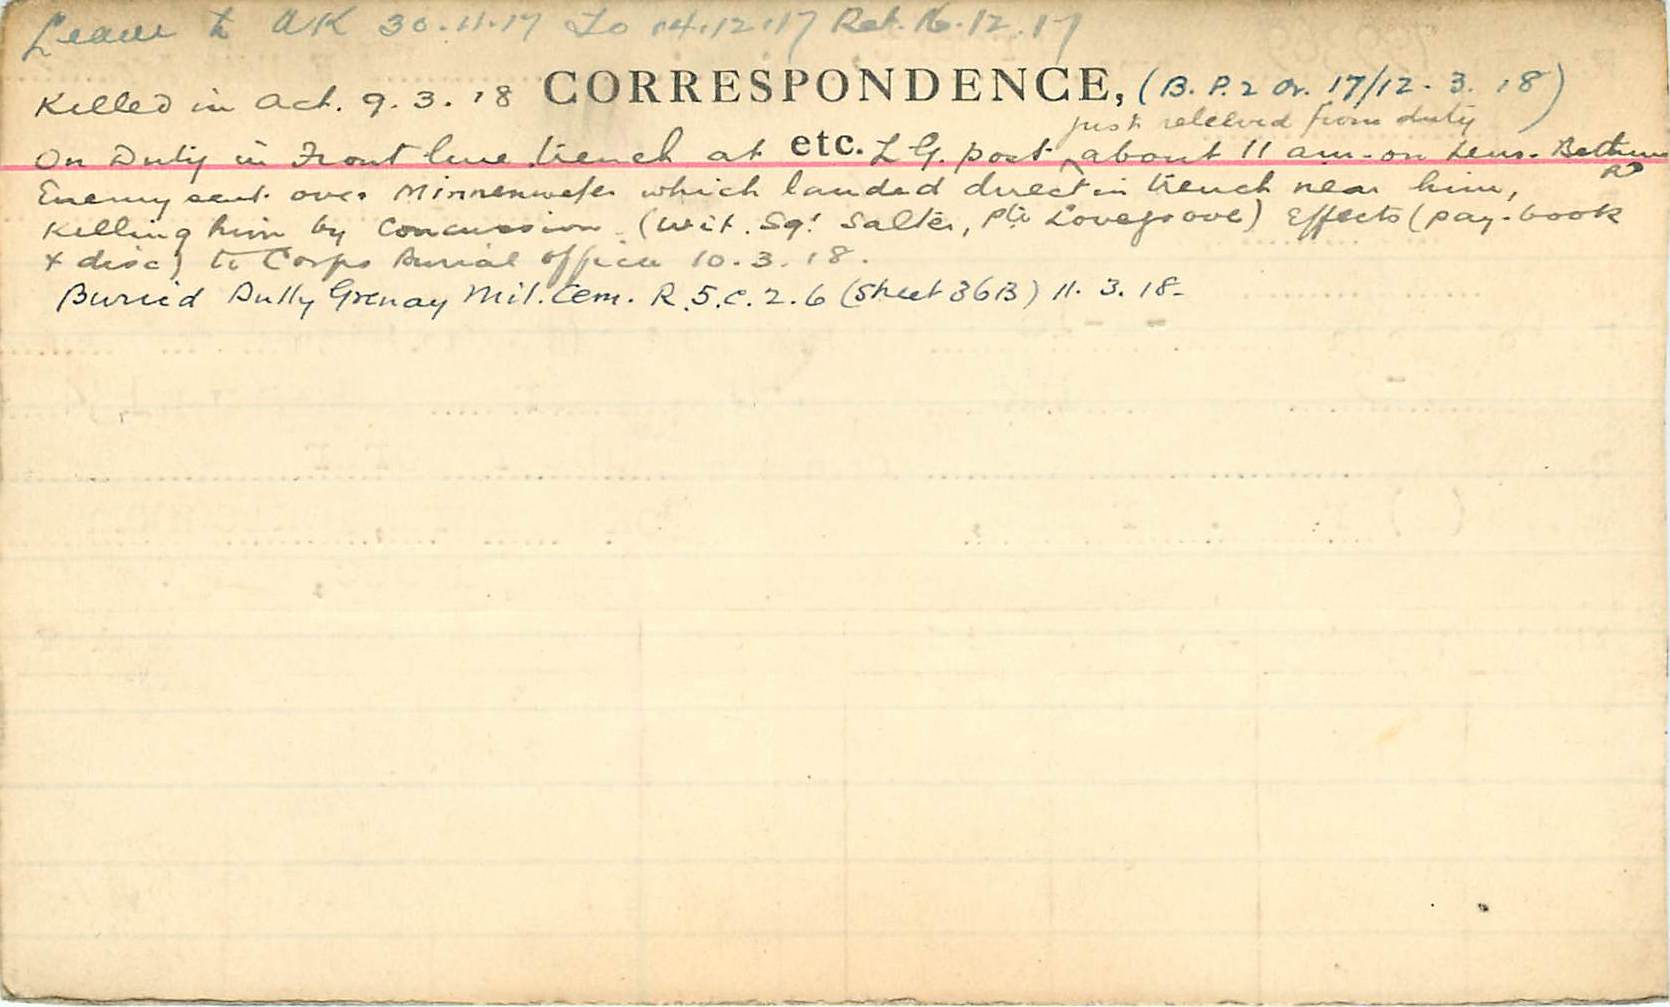 Leave to UK 30.11.17 To 14.12.17 Ret. 16.12.17
Killed in Act. 9.3.18 CORRESPONDENCE, (B.P.2 Or. 17/12.3.18)
just releived from duty
On Duty in Front line trench at etc. L.G. post ^ about 11 am - on Lens - Bethune
Rd
Enemy sent over Minnenwefer which landed direct in trench near him,
Killing him by Concussion. (Wit. Sgt Salter, Pte Lovegrove) Effects (pay-book
+ disc) to Corps Burial officer 10.3.18.
Buried Bully Grenay Mil. Cem. R.5.c.2.6 (Sheet 36B) 11.3.18-